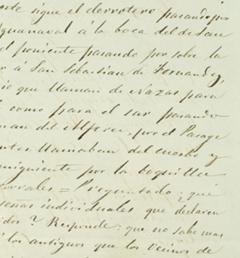 este sigue el derrotero pasando por
Aguanaval á la boca del de San
el poniente pasando por sobre la
á San Sebastian de Fernandez,
que llaman de Nazas para
como para el sur pasando
por el Parage
llamaban del cuervo y
siguiente por la boquilla
Corrales = Preguntado: qué
personas individuales que declaren
? Responde: que no sabe mas
los antiguos que los vecinos de